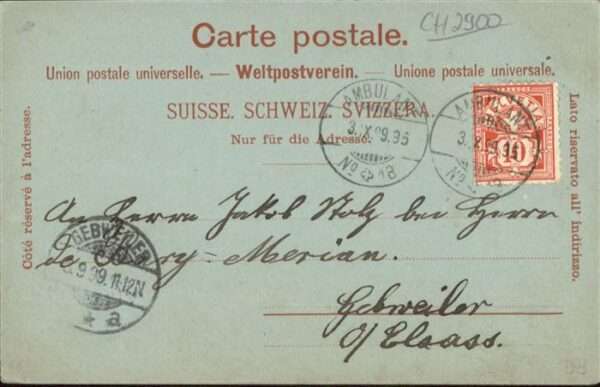 CH 2900
Carte postale.
Union postale universelle. — Weltpostverein. — Unione postale universale.
SUISSE. SCHWEIZ. SVIZZERA.
Nur für die Adresse.
Côté réservé à l'adresse.
Lato riservato all' indirizzo.
AMBULANT
3.IX.99.
No
AMBULANT
3. X. 99.
No
HELVETIA
10
An Herrn Jakob Stolz bei Herrn
de Bary-Merian.
Gebweiler
o/Elsass.
GEBWEILER
9 99. 11-12N
* a